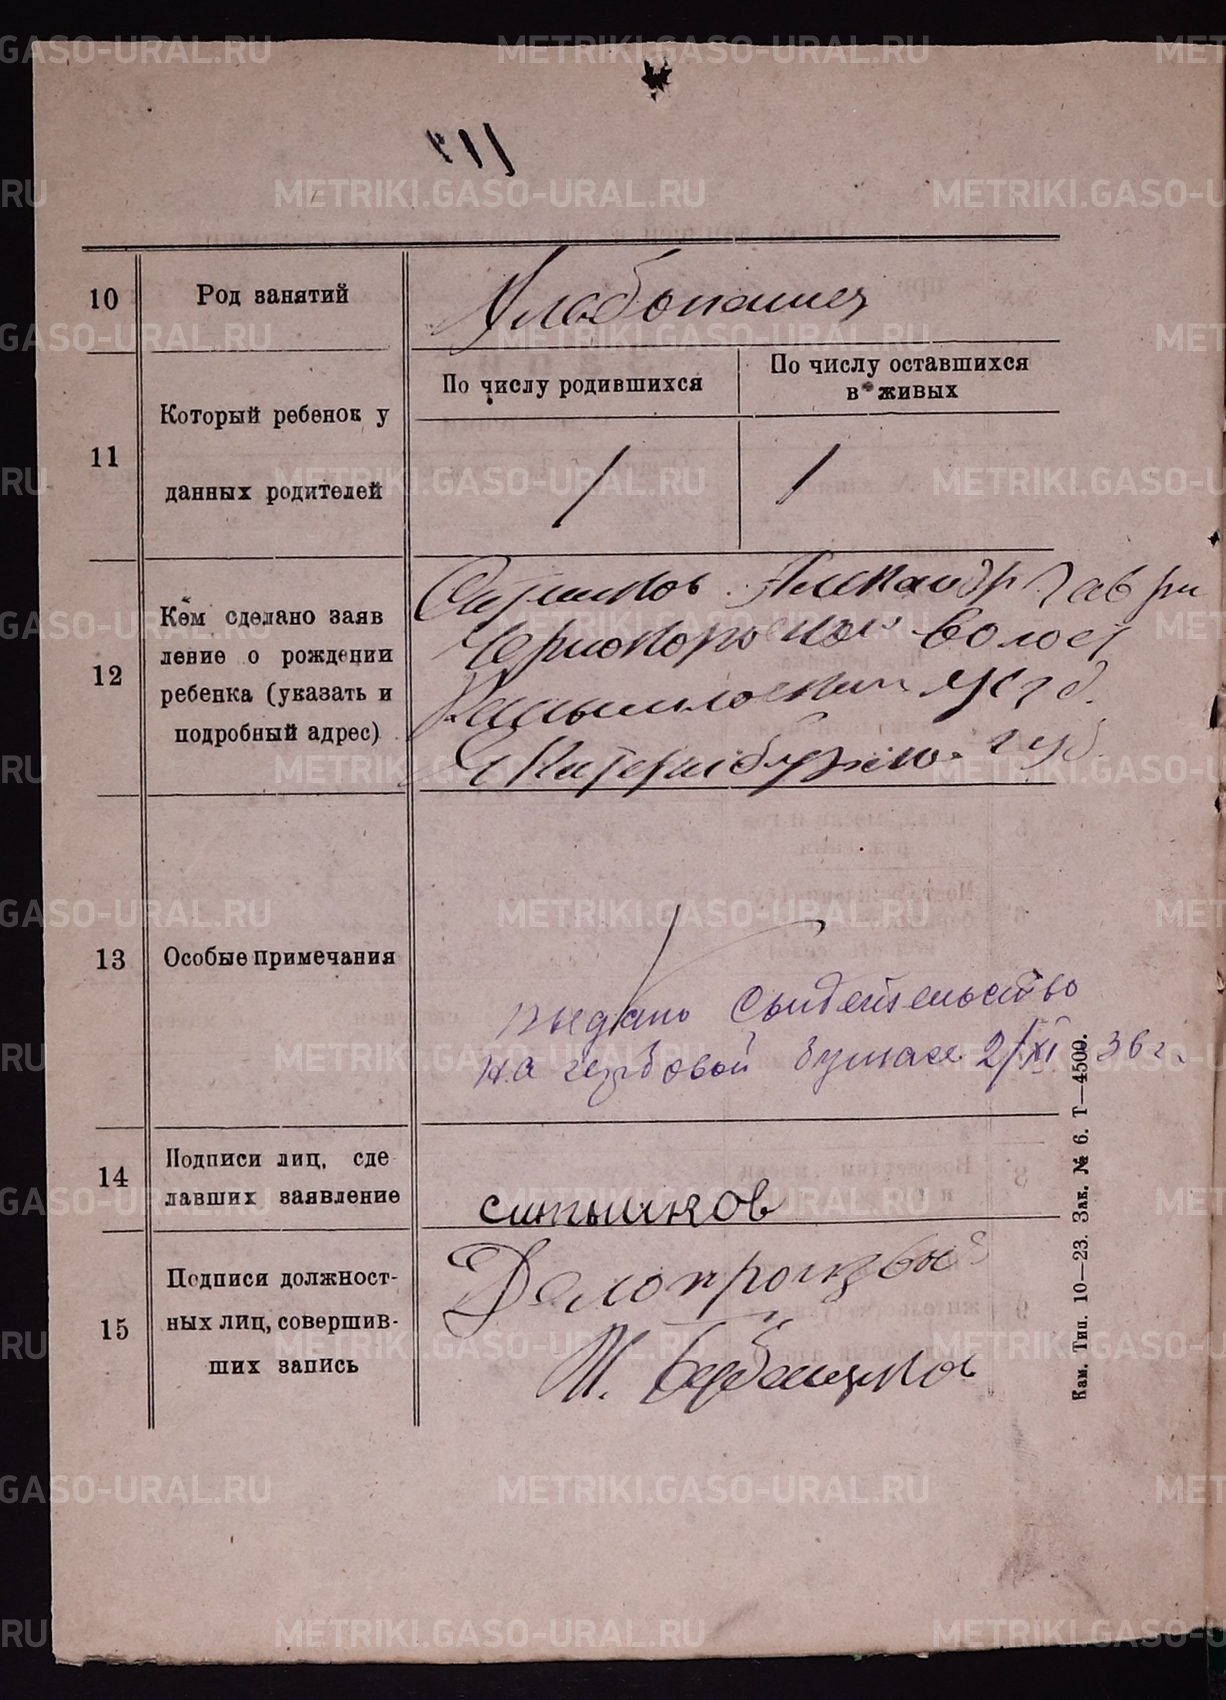 METRIKI.GASO-URAL.RU
117
10 Род занятий Хлебопашец
11 Который ребенок у данных родителей
По числу родившихся
По числу оставшихся
в живых
1 1
12 Кем сделано заяв
ление о рождении
ребенка (указать и
подробный адрес)
Ситников Александр Гаври
волост
Камышловскаго уезд.
Екатеринбургско. губ.
13 Особые примечания
выдано Свидетельство
на гербовой бумаге 2/XI 36 г.
14 Подписи лиц, сде
лавших заявление
ситников
15 Подписи должност-
ных лиц, совершив-
ших запись
Делопроизвод
Кам. Тип. 10—23. Зак. № 6. Т—4500.